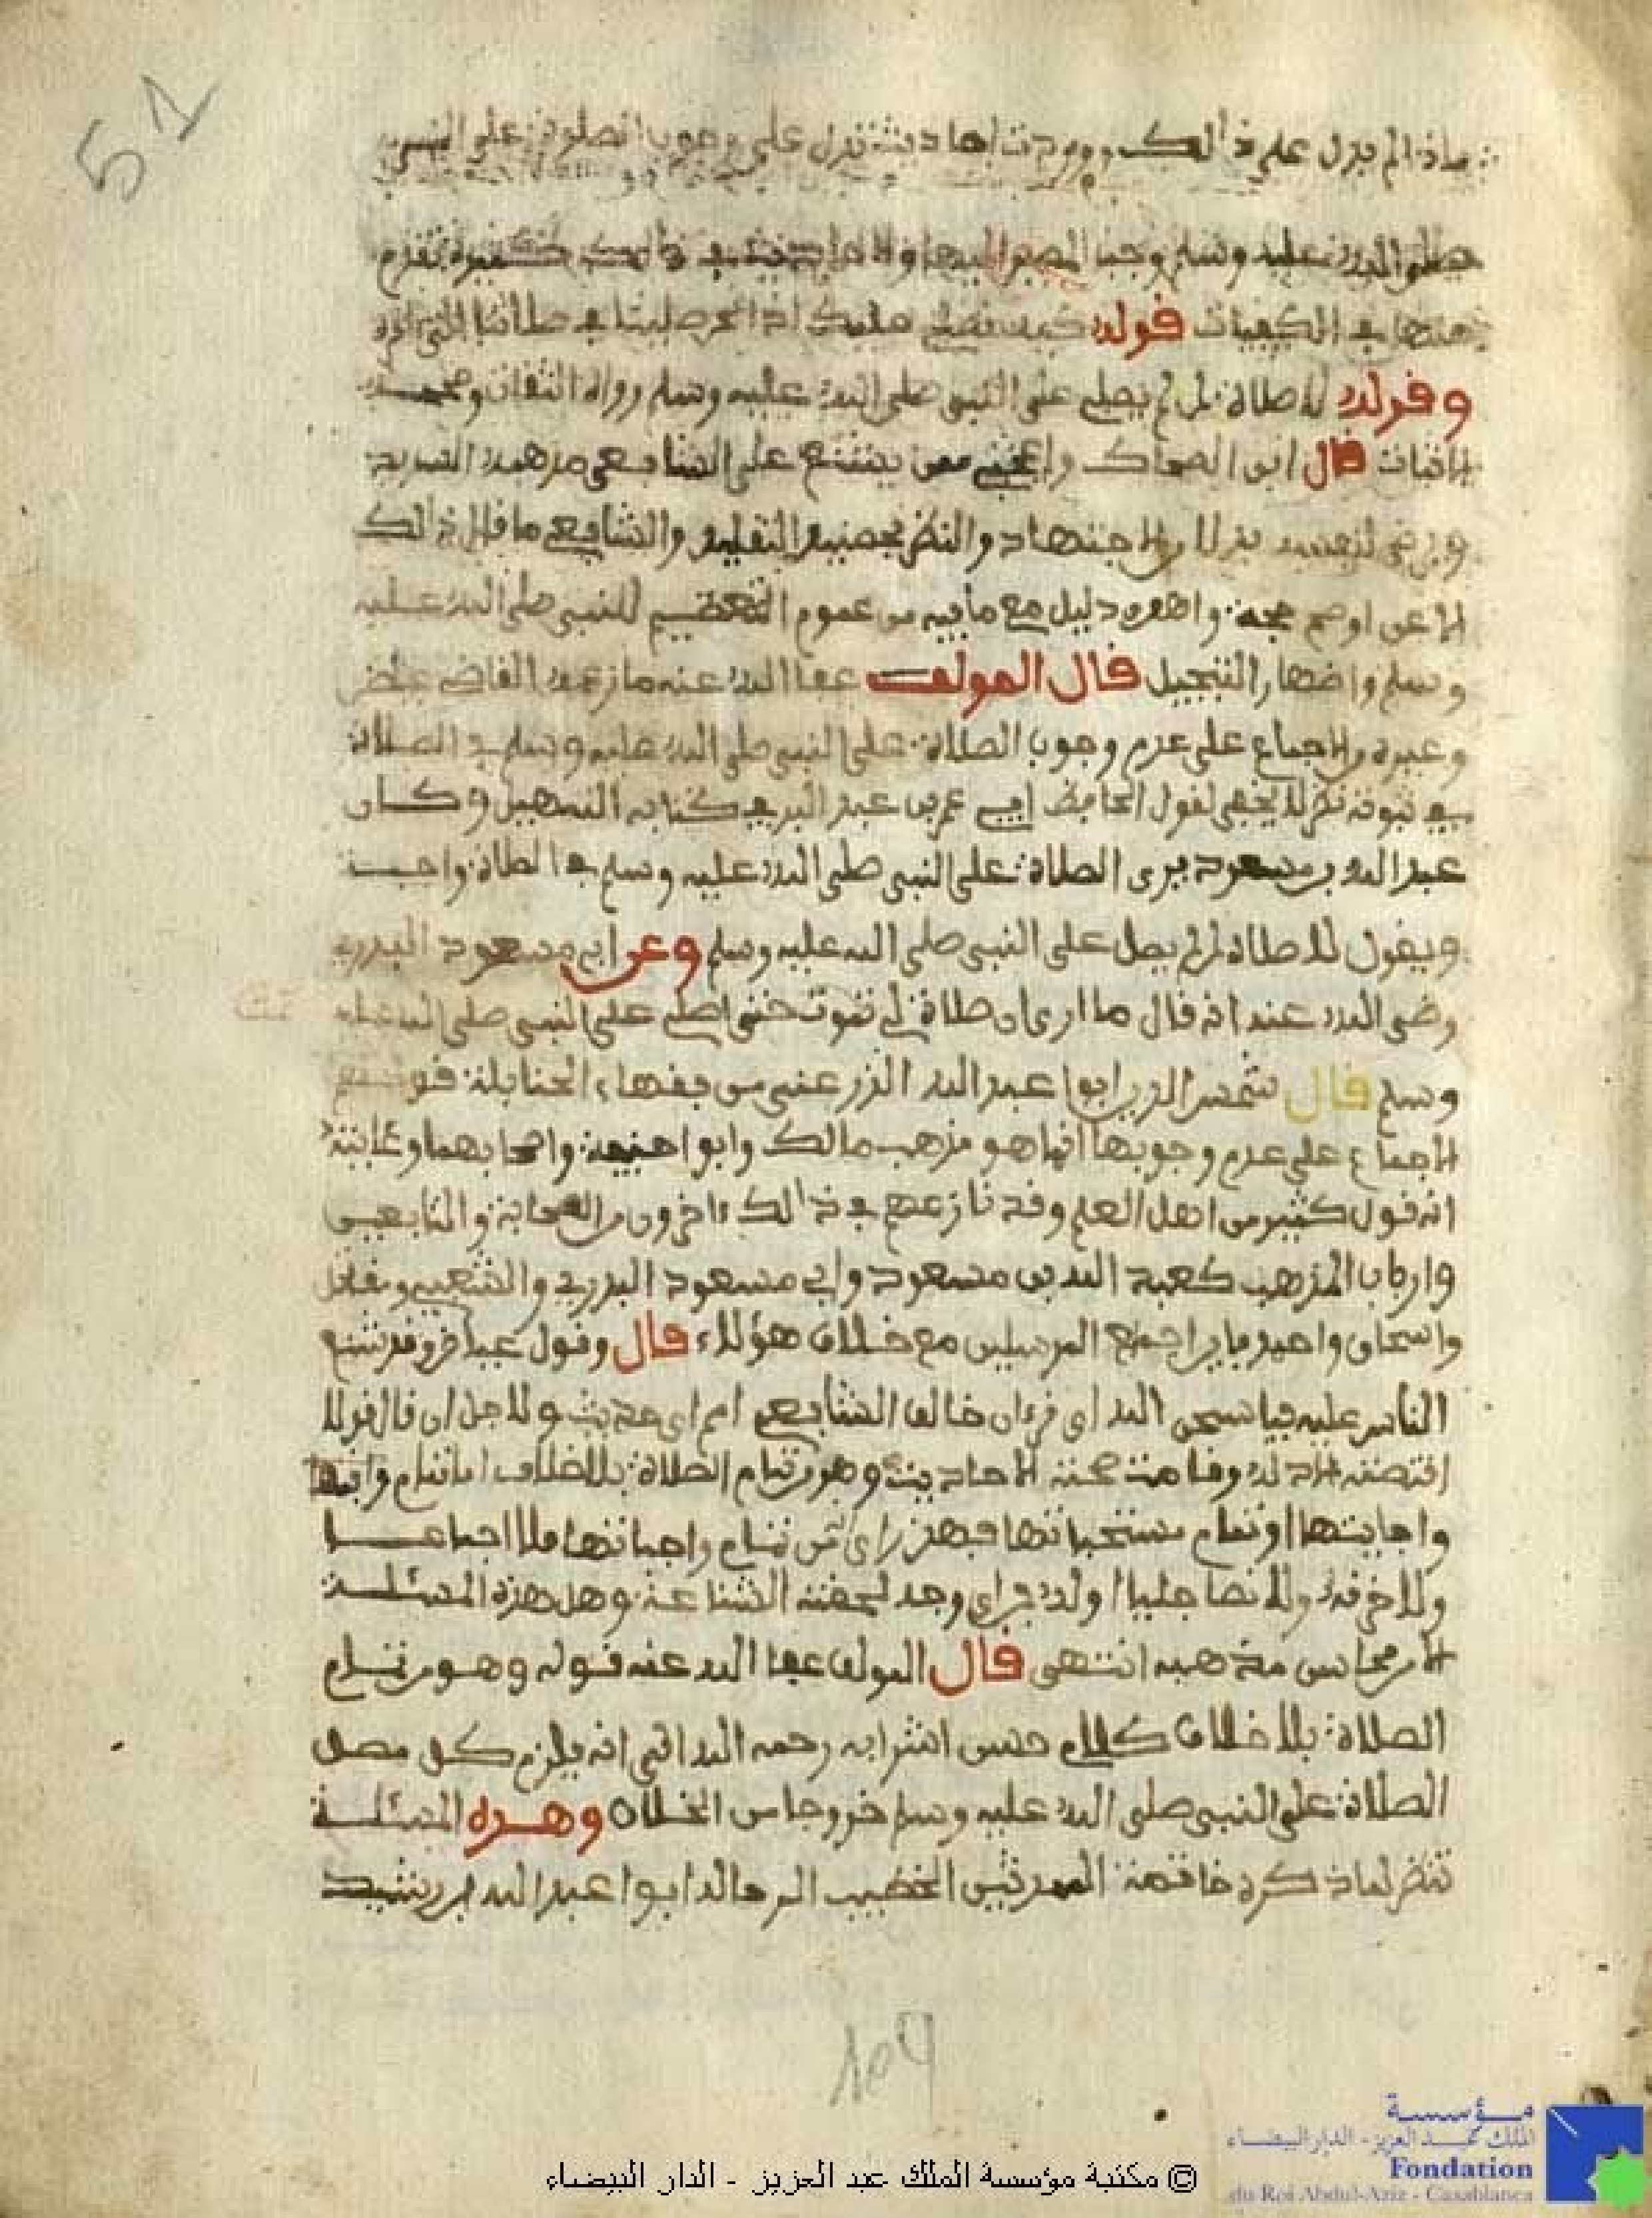 51
فاذا لم يدل على ذالك ووردت احاديث تدل على وجوب الصلوة على النبي
صلى الله عليه وسلم وجب المصير اليها والاحاديث في ذالك كثيرة تقدم
منها في الكيفيات قوله كيف نصلي عليك اذا نحن صلينا في صلاتنا
وقوله لا صلاة لمن لم يصلي على النبي صلى الله عليه وسلم رواه الثقات
الاثبات قال ابو الضحاك واعجبني ممن يشنع على الشافعي مذهبه السديد
لنفسه والاجتهاد والنظر التقليد والشافعي ما قال ذالك
الا عن اوضح حجة واظهر دليل مع ما فيه من عموم التعظيم للنبي صلى الله عليه
وسلم واظهار التبجيل قال المولف عفا الله عنه ما زعمه القاضي عياض
وغيره والاجماع على عدم وجوب الصلاة على النبي صلى الله عليه وسلم في الصلاة
في ثبوته نظر لا يخفى لقول الحافظ ابي عمر بن عبد البر في كتابه التسهيل وكان
عبد الله بن مسعود يرى الصلاة على النبي صلى الله عليه وسلم في الصلاة واجبة
ويقول لا صلاة لمن لم يصل على النبي صلى الله عليه وسلم وعن ابي مسعود البدري
رضي الله عنه انه قال ما ارى ان صلاة لي تمت حتى اصلي على النبي صلى الله عليه
وسلم قال شمس الدين ابوا عبد الله الزرعني من فقهاء الحنابلة
الاجماع على عدم وجوبها انما هو مذهب مالك وابوا حنيفة واصحابهما وغايته
انه قول كثير من اهل العلم وقد نازعهم في ذالك ءاخرون من الصحابة والتابعين
وارباب المذهب كعبد الله بن مسعود وابي مسعود البدري والشعبي ومقاتل
واسحاق واحمد فاين اجماع المرسلين مع خلاف هؤلاء قال وقول عياض وقد شنع
الناس عليه فيا سبحن الله اي قرءان خالف الشافعي ام اي حديث ولاجل ان قال قولا
اقتضته الادلة وقامت صحته الاحاديث وهو من تمام الصلاة بلا خلاف اما تمام
واجابتها او تمام مستحباتها فهذا راى من تمام واجباتها فلا اجماعا
ولا خرقه ولا نصا جليا اوله فباي وجه لحقته الشناعة وهل هذه المسئلة
الا من محاسن مذهبه انتهى قال المولف عفا الله عنه قوله وهو من تمام
الصلاة بلا خلاف كلام حسن رحمه الله اني انه يلزم كل مصل
الصلاة على النبي صلى الله عليه وسلم خروجا من الخلاف وهذه المسئلة
تنظر لما ذكره خاتمة المحدثين الخطيب الرحالة ابوا عبد الله ابن رشيد
104
© مكتبة مؤسسة الملك عبد العزيز - الدار البيضاء
مؤسسة
الملك عبد العزيز - الدار البيضاء
Fondation
du Roi Abdul-Aziz - Casablanca